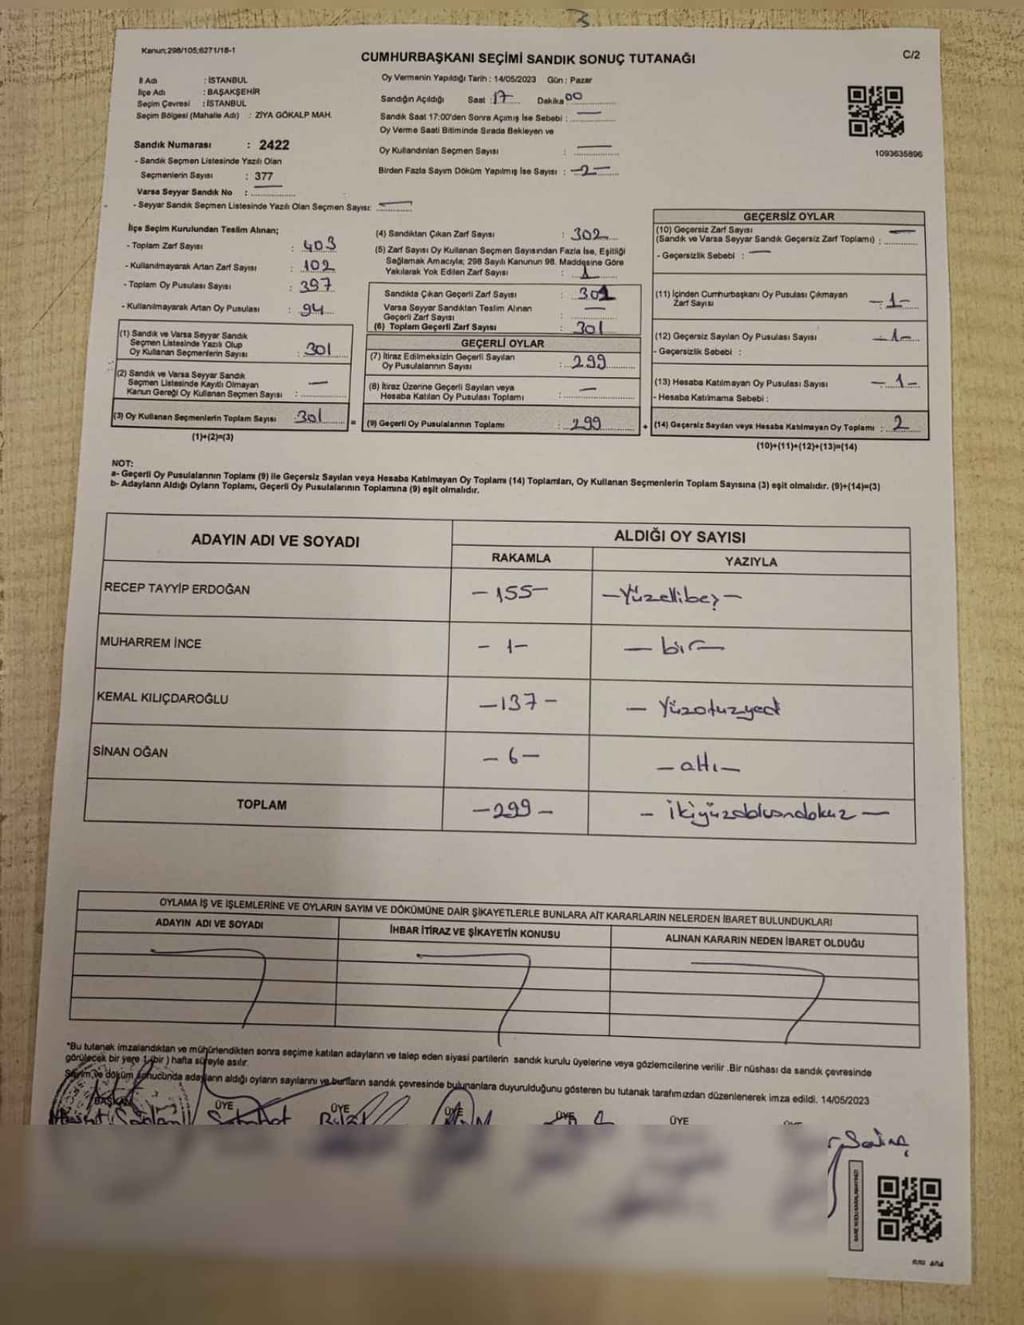 3
Kanun;298/105;6271/18-1
CUMHURBAŞKANI SEÇİMİ SANDIK SONUÇ TUTANAĞI
C/2
İl Adı : İSTANBUL
İlçe Adı : BAŞAKŞEHİR
Seçim Çevresi : İSTANBUL
Seçim Bölgesi (Mahalle Adı) : ZİYA GÖKALP MAH.
Sandık Numarası : 2422
- Sandık Seçmen Listesinde Yazılı Olan
Seçmenlerin Sayısı : 377
Varsa Seyyar Sandık No :
- Seyyar Sandık Seçmen Listesinde Yazılı Olan Seçmen Sayısı:
Oy Vermenin Yapıldığı Tarih : 14/05/2023 Gün : Pazar
Sandığın Açıldığı Saat : 17 Dakika 00
Sandık Saat 17:00'den Sonra Açımış İse Sebebi :
Oy Verme Saati Bitiminde Sırada Bekleyen ve
Oy Kullandırılan Seçmen Sayısı :
Birden Fazla Sayım Döküm Yapılmış İse Sayısı : -2-
1093635896
İlçe Seçim Kurulundan Teslim Alınan;
- Toplam Zarf Sayısı : 403
- Kullanılmayarak Artan Zarf Sayısı : 102
- Toplam Oy Pusulası Sayısı : 397
- Kullanılmayarak Artan Oy Pusulası : 94
(1) Sandık ve Varsa Seyyar Sandık
Seçmen Listesinde Yazılı Olup
Oy Kullanan Seçmenlerin Sayısı : 301
(2) Sandık ve Varsa Seyyar Sandık
Seçmen Listesinde Kayıtlı Olmayan
Kanun Gereği Oy Kullanan Seçmen Sayısı : —
(3) Oy Kullanan Seçmenlerin Toplam Sayısı : 301
(1)+(2)=(3)
(4) Sandıktan Çıkan Zarf Sayısı : 302
(5) Zarf Sayısı Oy Kullanan Seçmen Sayısından Fazla İse, Eşitliği
Sağlamak Amacıyla; 298 Sayılı Kanunun 98. Maddesine Göre
Yakılarak Yok Edilen Zarf Sayısı : 1
Sandıkta Çıkan Geçerli Zarf Sayısı : 301
Varsa Seyyar Sandıktan Teslim Alınan
Geçerli Zarf Sayısı : —
(6) Toplam Geçerli Zarf Sayısı : 301
GEÇERLİ OYLAR
(7) İtiraz Edilmeksizin Geçerli Sayılan
Oy Pusulalarının Sayısı : 299
(8) İtiraz Üzerine Geçerli Sayılan veya
Hesaba Katılan Oy Pusulası Toplamı : —
= (9) Geçerli Oy Pusulalarının Toplamı : 299
GEÇERSİZ OYLAR
(10) Geçersiz Zarf Sayısı
(Sandık ve Varsa Seyyar Sandık Geçersiz Zarf Toplamı) : —
- Geçersizlik Sebebi : —
(11) İçinden Cumhurbaşkanı Oy Pusulası Çıkmayan
Zarf Sayısı : -1-
(12) Geçersiz Sayılan Oy Pusulası Sayısı : -1-
- Geçersizlik Sebebi :
(13) Hesaba Katılmayan Oy Pusulası Sayısı : -1-
- Hesaba Katılmama Sebebi :
+ (14) Geçersiz Sayılan veya Hesaba Katılmayan Oy Toplamı : 2
(10)+(11)+(12)+(13)=(14)
NOT:
a- Geçerli Oy Pusulalarının Toplamı (9) ile Geçersiz Sayılan veya Hesaba Katılmayan Oy Toplamı (14) Toplamları, Oy Kullanan Seçmenlerin Toplam Sayısına (3) eşit olmalıdır. (9)+(14)=(3)
b- Adayların Aldığı Oyların Toplamı, Geçerli Oy Pusulalarının Toplamına (9) eşit olmalıdır.
ADAYIN ADI VE SOYADI
ALDIĞI OY SAYISI
RAKAMLA YAZIYLA
RECEP TAYYİP ERDOĞAN -155- -Yüzellibeş-
MUHARREM İNCE -1- -bir-
KEMAL KILIÇDAROĞLU -137- - Yüzotuzyedi
SİNAN OĞAN -6- -altı-
TOPLAM -299- - ikiyüzdoksandokuz -
OYLAMA İŞ VE İŞLEMLERİNE VE OYLARIN SAYIM VE DÖKÜMÜNE DAİR ŞİKAYETLERLE BUNLARA AİT KARARLARIN NELERDEN İBARET BULUNDUKLARI
ADAYIN ADI VE SOYADI İHBAR İTİRAZ VE ŞİKAYETİN KONUSU ALINAN KARARIN NEDEN İBARET OLDUĞU
*Bu tutanak imzalandıktan ve mühürlendikten sonra seçime katılan adayların ve talep eden siyasi partilerin sandık kurulu üyelerine veya gözlemcilerine verilir .Bir nüshası da sandık çevresinde
görülecek bir yere 1 (bir ) hafta süreyle asılır.
Sayım ve döküm sonucunda adayların aldığı oyların sayılarını ve bunların sandık çevresinde bulunanlara duyurulduğunu gösteren bu tutanak tarafımızdan düzenlenerek imza edildi. 14/05/2023
BAŞKAN ÜYE ÜYE ÜYE ÜYE ÜYE